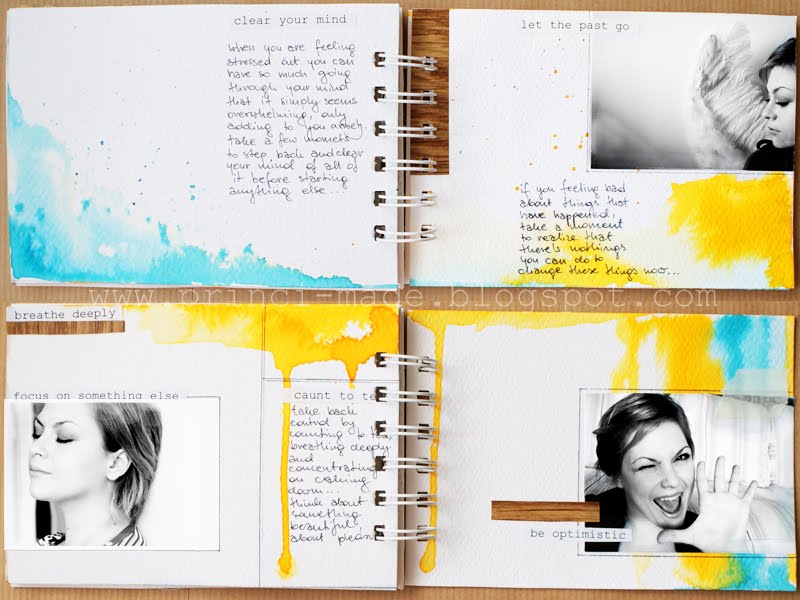 clear your mind
when you are feeling
stressed out you can
have so much going
through your mind
that it simply seems
overwhelming, only
adding to you anxiety.
take a few momets
to step back and clear
your mind of all of
it before starting
anything else...
let the past go
if you feeling bad
about things that
have happened,
take a moment
to realize that
there's nothings
you can do to
change these things now...
www.princi-made.blogspot.com
breathe deeply
focus on something else
caunt to te
take back
control by
counting to ten,
breathing deeply
and
concentrating
on calming
down...
think about
something
beautiful,
about pleas
be optimistic